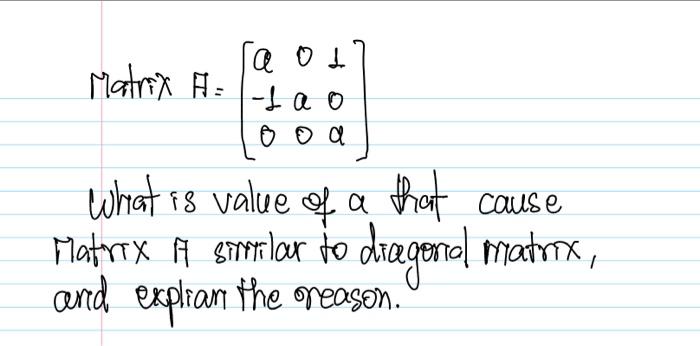 Matrix A = [a 0 1
-1 a 0
0 0 a]
What is value of a that cause
Matrix A similar to diagonal matrix,
and explian the reason.